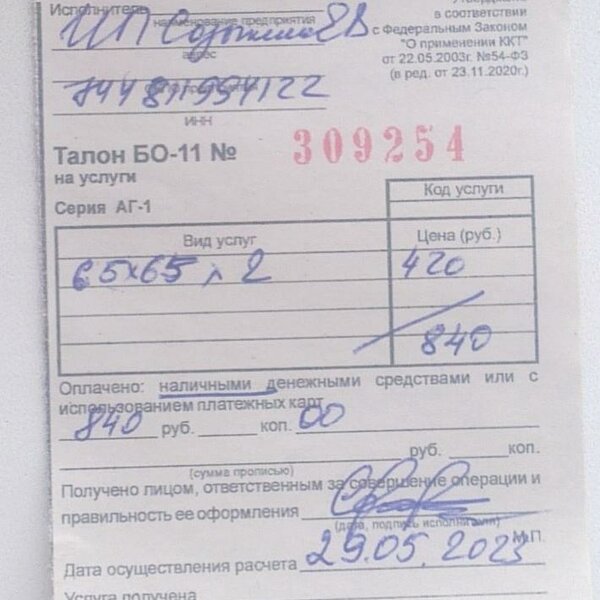 Исполнитель ИП
наименование предприятия
в соответствии
с Федеральным Законом
"О применении ККТ"
от 22.05.2003г. №54-ФЗ
(в ред. от 23.11.2020г.)
адрес
744811994122
ИНН
Талон БО-11 № 309254
на услуги
Серия АГ-1
Код услуги
Вид услуг Цена (руб.)
65х65 л 2 420
840
Оплачено: наличными денежными средствами или с
использованием платежных карт
840 руб. коп. 00
руб. коп.
(сумма прописью)
Получено лицом, ответственным за совершение операции и
правильность ее оформления
(дата, подпись исполнителя)
М.П.
Дата осуществления расчета 29.05.2023
Услуга получена